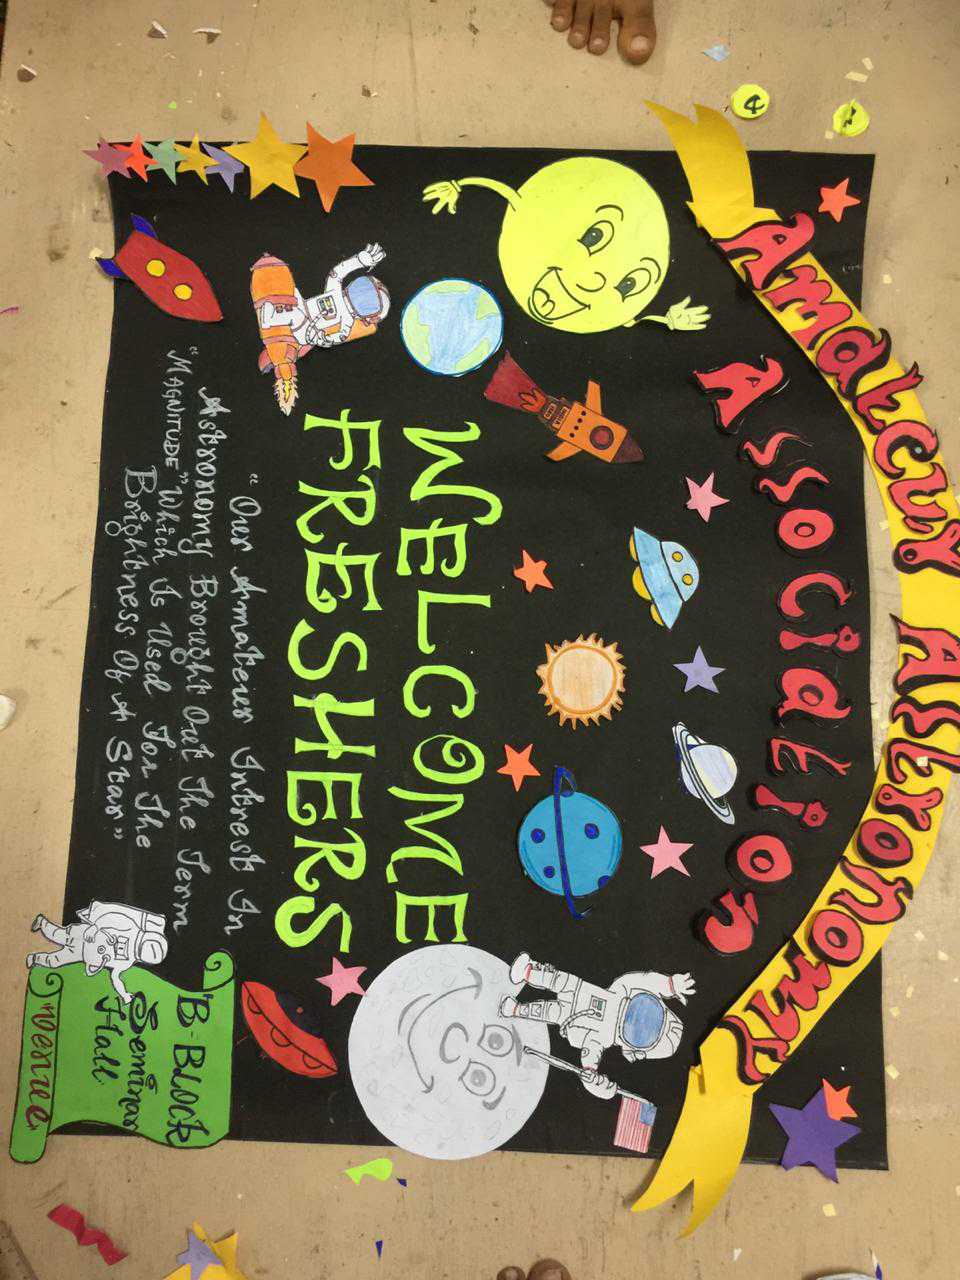 Amateur Astronomy
Association
WELCOME
FRESHERS
"Our Amateur Intrest In
Astronomy Brought Out The Term
"MAGNITUDE" Which Is Used For The
Brightness Of A Star"
B-Block
Seminar
Hall
Venue